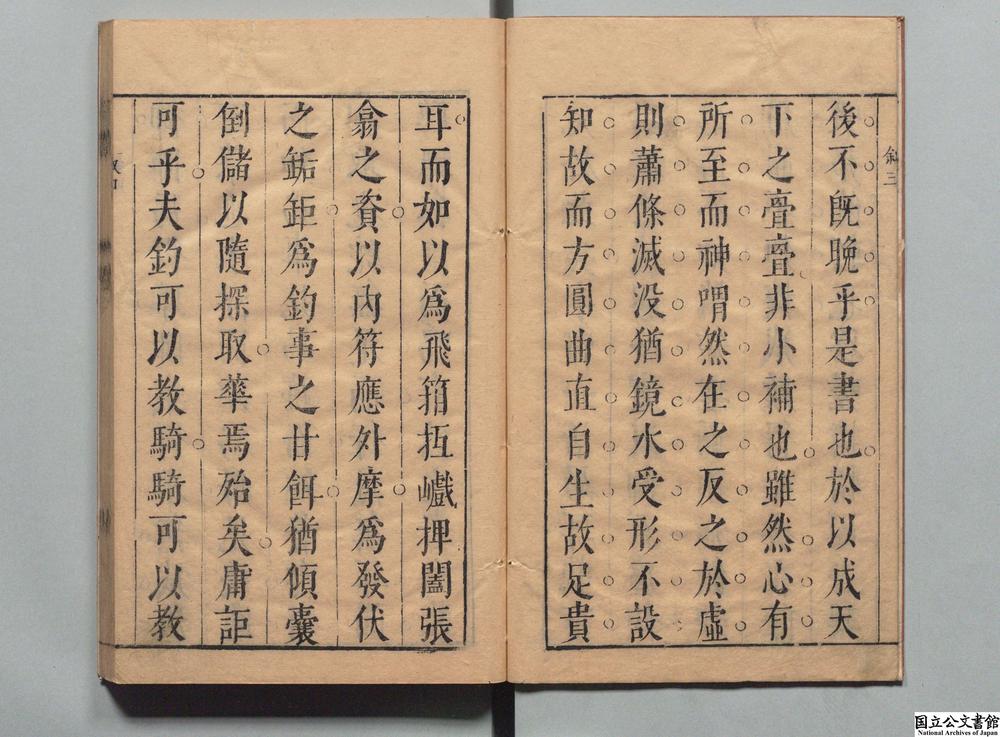 敘三
後不旣晚乎是書也於以成天
下之亹亹非小補也雖然心有
所至而神喟然在之反之於虛
則蕭條滅没猶鏡水受形不設
知故而方圓曲直自生故足貴
耳而如以爲飛箝抵巇押闔張
翕之資以内符應外摩爲發伏
之鉐鉅爲釣事之甘餌猶傾囊
倒儲以隨探取華焉殆矣庸詎
可乎夫釣可以教騎騎可以教
国立公文書館
National Archives of Japan